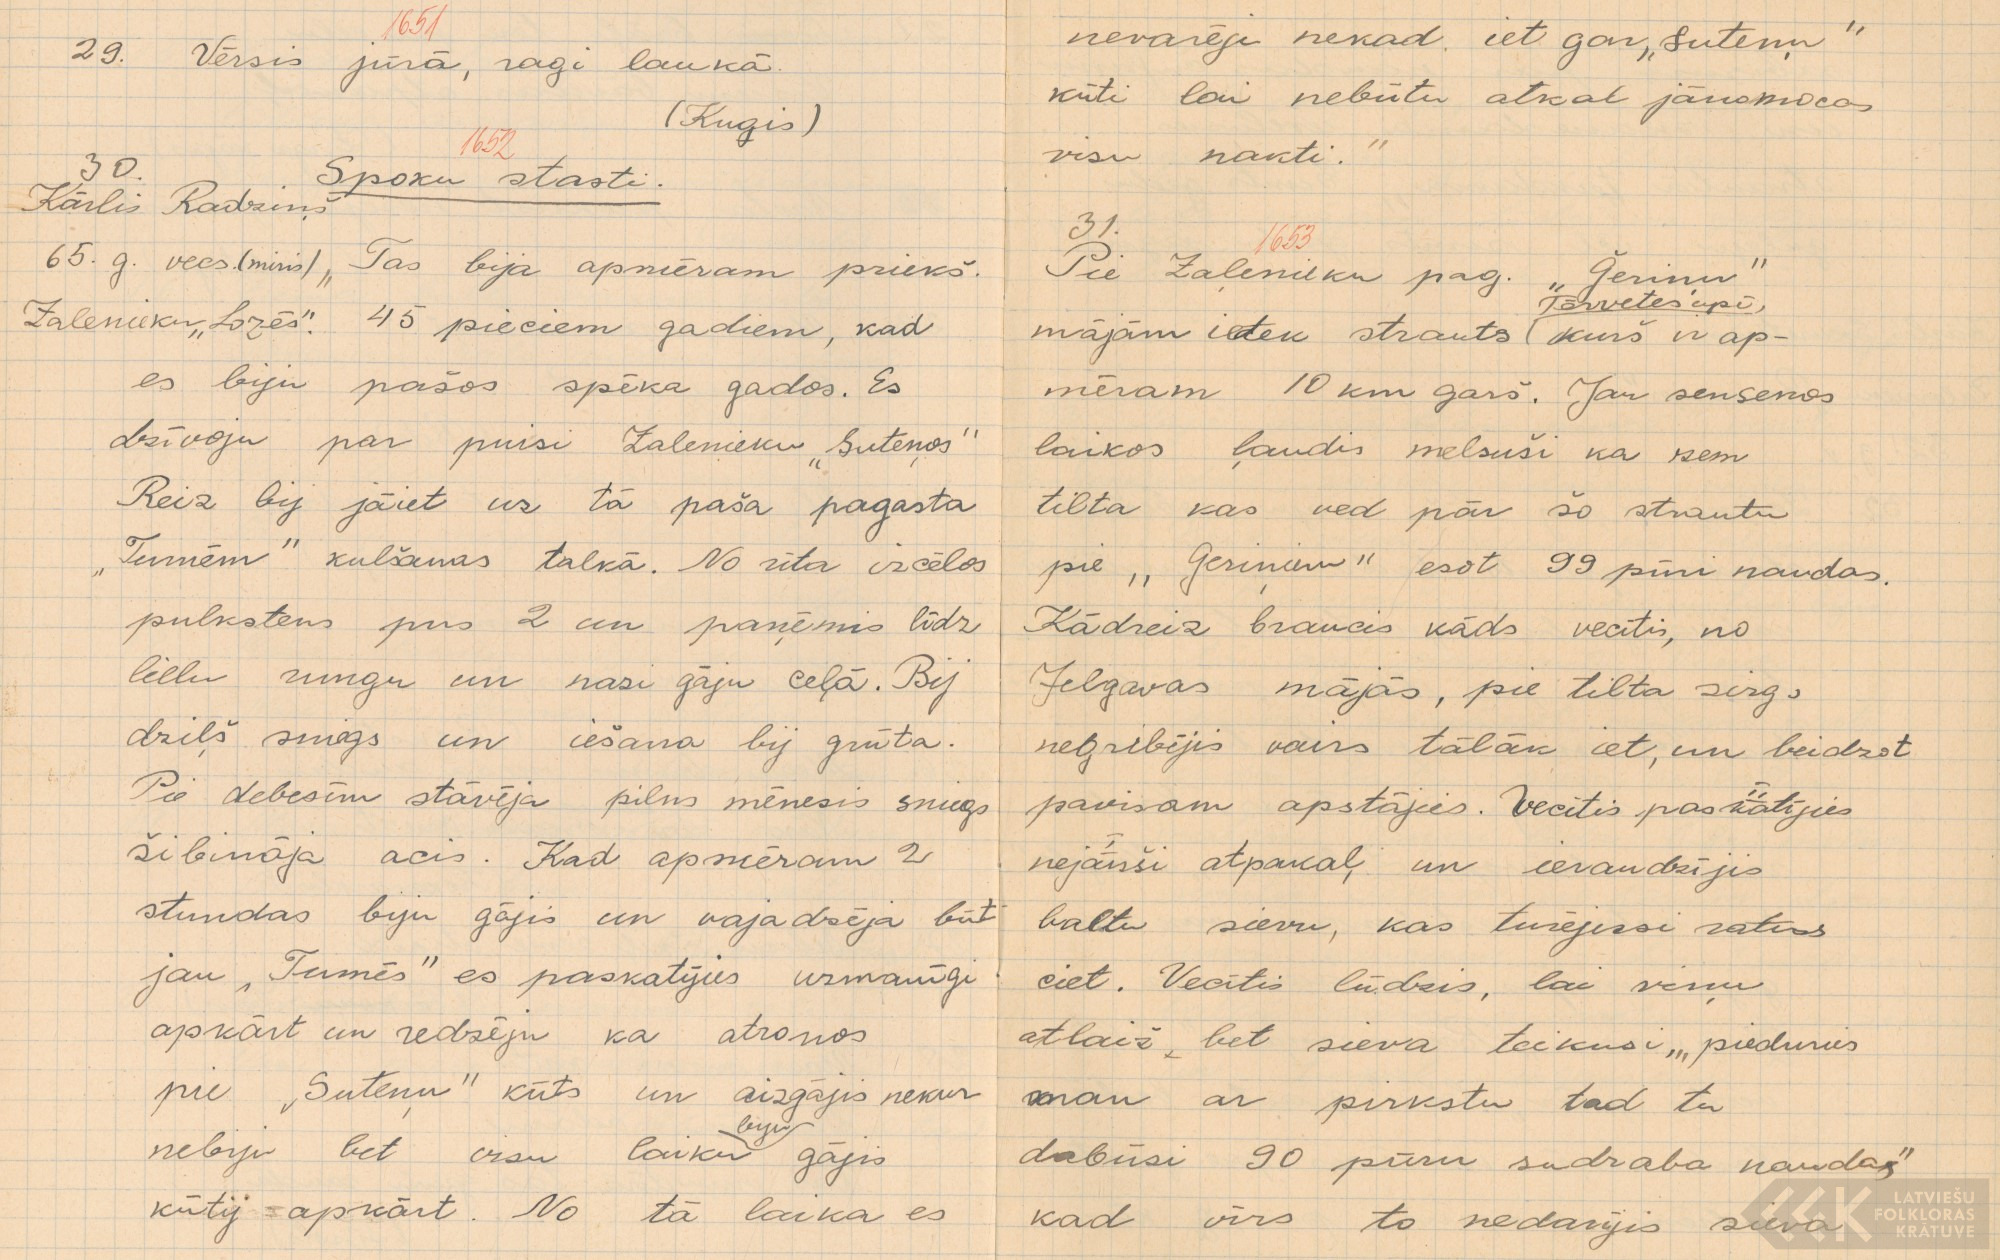 1651
29. Vērsis jūrā, ragi laukā.
(Kugis)
1652
30. Spoku stasti.
Kārlis Radziņš
65. g. vecs. (miris) „Tas bija apmēram priekš.
Zalenieku „Lozēs". 45 pieciem gadiem, kad
es biju pašos spēka gados. Es
dzīvoju par puisi Zalenieku „Suteņos"
Reiz bij jāiet uz tā paša pagasta
„Tumēm" kulšanas talkā. No rīta izcēlos
pulkstens pus 2 un paņēmis līdz
lielu rungu un nazi gāju ceļā. Bij
dziļš sniegs un iešana bij grūta.
Pie debesīm stāvēja pilns mēnesis sniegs
žibināja acis. Kad apmēram 2
stundas biju gājis un vajadzēja būt
jau „Tumēs" es paskatījies uzmanīgi
apkārt un redzēju ka atronos
pie „Suteņu" kūts un aizgājis nekur
nebiju bet visu laiku biju gājis
kūtij apkārt. No tā laika es
nevarēju nekad iet gar „Suteņu"
kūti lai nebūtu atkal jānomocas
visu nakti."
31.
1653
Pie Zaļenieku pag. „Ģeriņu"
mājām ietek strauts Tērvetes upē, kurš ir ap-
mēram 10 km garš. Jau sensenos
laikos ļaudis melsuši ka zem
tilta kas ved pār šo strautu
pie „Geriņiem" esot 99 pūri naudas.
Kādreiz braucis kāds vecītis, no
Jelgavas mājās, pie tilta zirgs
negribējis vairs tālāk iet, un beidzot
pavisam apstājies. Vecītis paskatījies
nejauši atpakaļ un ieraudzījis
baltu sievu, kas turējusi ratus
ciet. Vecītis lūdzis, lai viņu
atlaiž, bet sieva teikusi, „pieduries
man ar pirkstu tad tu
dabūsi 90 pūru sudraba naudas"
kad vīrs to nedarījis sieva
LATVIEŠU
FOLKLORAS
KRĀTUVE